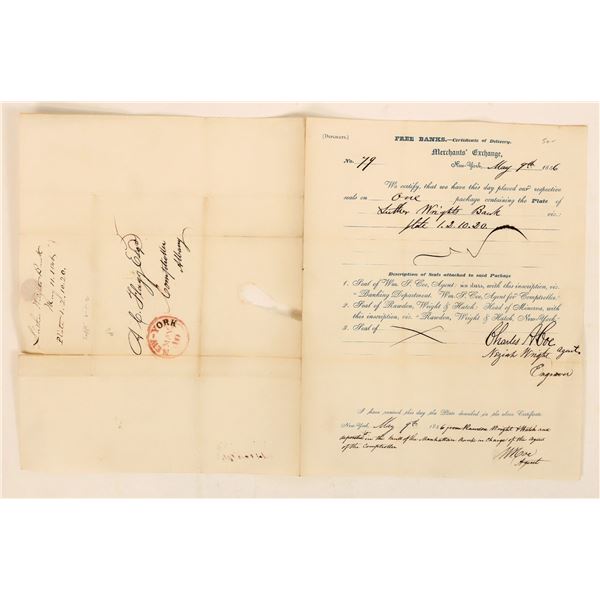 [Duplicate.]
FREE BANKS.—Certificate of Delivery.
Merchants' Exchange,
No. 79
New-York, May 9th 1846
We certify, that we have this day placed our respective
seals on One package containing the Plate of
Luther Wrights Bank viz:
plate 1.2.10.20.
Description of Seals attached to said Package
1. Seal of Wm. S. Coe, Agent: with this inscription, viz.
"Banking Department. Wm. S. Coe, Agent for Comptroller."
2. Seal of Rawdon, Wright & Hatch: Head of Minerva, with
this inscription, viz: "Rawdon, Wright & Hatch, New-York."
3. Seal of
Charles A Coe
Agent
Neziah Wright
Engraver
I have received this day the Plate described in the above Certificate
New-York, May 9th 1846 from Rawdon Wright & Hatch and
deposited in the vault of the Manhattan Bank in charge of the Agent
of the Comptroller
Agent
A C Flagg Esq
Comptroller
Albany
NEW-YORK
MAY
10
Luther Wrights Bank
May 11. 1846
Plate 1.2.10.20.